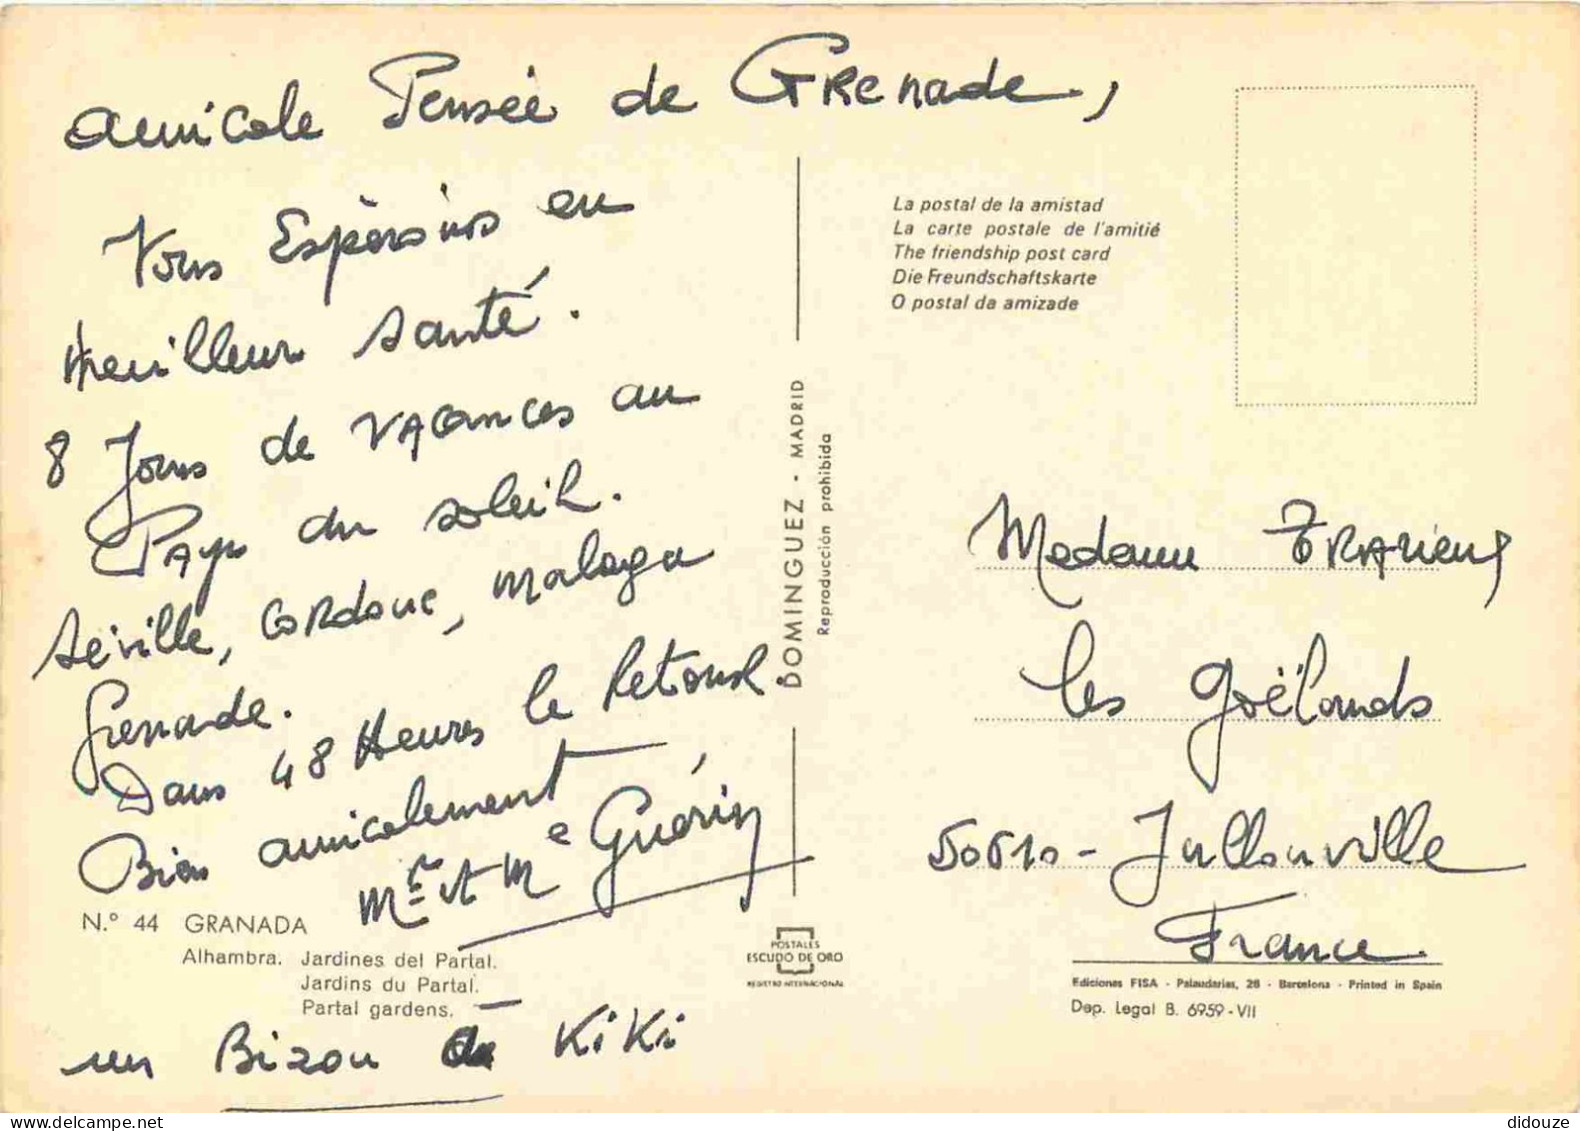 Amicale Pensée de Grenade,
Vous Espèrons en
Meilleur santé.
8 Jours de VACANCES au
PAys du soleil.
Séville, CORDOUE, Malaga
Grenade.
Dans 48 Heures le Retour.
Bien amicalement
Mr et Me Guérin
N.° 44 GRANADA
Alhambra. Jardines del Partal.
Jardins du Partal.
Partal gardens.
un Bizou à KiKi
DOMINGUEZ - MADRID
Reproducción prohibida
POSTALES
ESCUDO DE ORO
REGISTRO INTERNACIONAL
La postal de la amistad
La carte postale de l'amitié
The friendship post card
Die Freundschaftskarte
O postal da amizade
Madame
Les Goëlands
50610 - Jullouville
France.
Ediciones FISA - Palaudarias, 26 - Barcelona - Printed in Spain
Dep. Legal B. 6959-VII
didouze